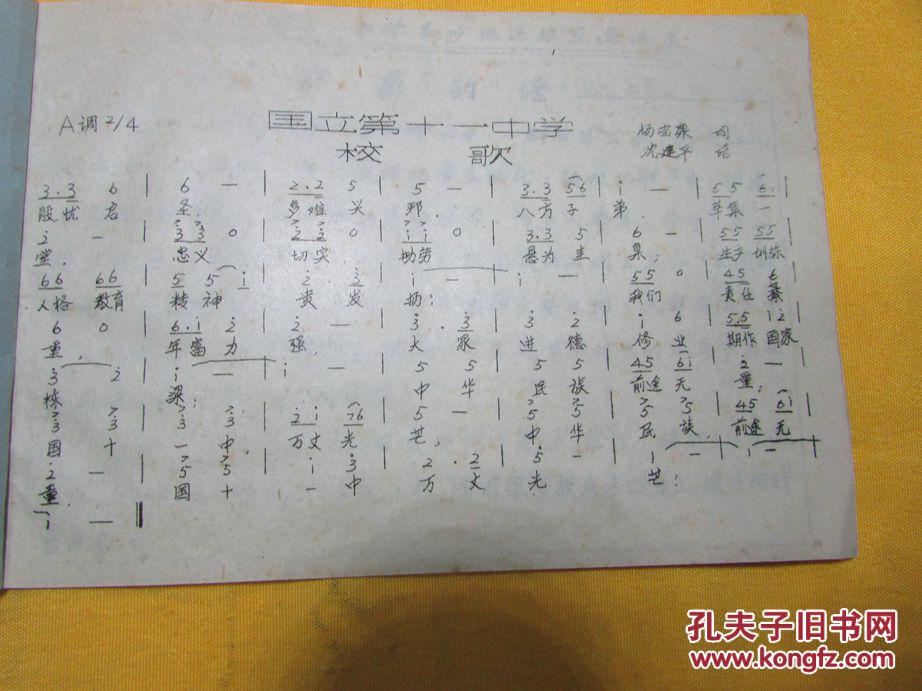 A调 2/4
国立第十一中学
校 歌
杨宏荣 词
沈建平 曲
3.3 6 | 6 — | 2.2 5 | 5 — | 3.3 56 | i — | 55 6i |
殷忧 启 圣, 多难 兴 邦. 八方 子 弟. 萃集 一
2 — | 33 0 | 22 0 | ii 0 | 3.3 5 | 6 — | 55 55 |
堂. 忠义 切实 勤劳 悬为 圭 臬; 生产 训练
66 66 | 5 5 i | 2 3 | i — | i — | 55 0 | 45 6 |
人格 教育 精 神 贵 发 扬: 我们 责任 綦
6 0 | 6.i 2 | 2 — | 3 . 3 | 3 2 | i 6 | 5.5 i2 |
重, 年富 力 强, 大 家 进 德 修 业 期作 国家
3 2 | i — | i — | 5 5 | 5 5 | 45 6i | 2 — |
栋 梁: 中 华 民 族 前途 无 量;
3 3 | 3 3 | 2 i 76 | 5 — | 5 5 | 5 5 | 45 6i |
国 十 一 中, 万丈 光 芒, 中 华 民 族, 前途 无
2 — | 5 5 | i 3 | 2 . 2 | 5 — | i — | i — |
量, 国 十 一 中 万 丈 光 芒:
i —
孔夫子旧书网
www.kongfz.com